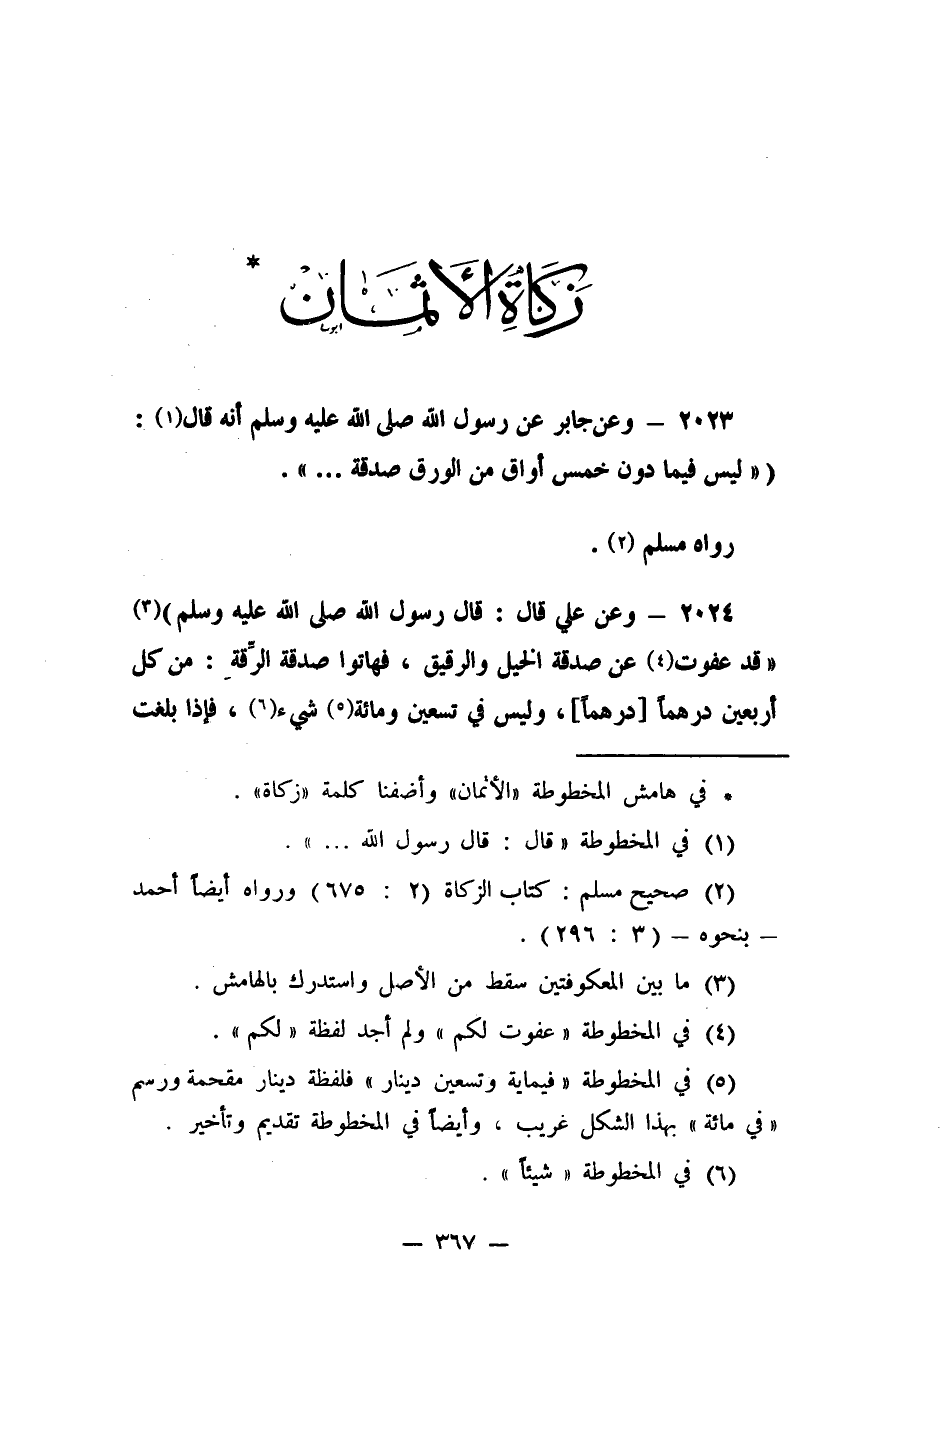 زكاة الأثمان *
٢٠٢٣ – وعن جابر عن رسول الله صلى الله عليه وسلم أنه قال(١) :
( « ليس فيما دون خمس أواق من الورق صدقة ... » .
رواه مسلم (٢) .
٢٠٢٤ – وعن علي قال : قال رسول الله صلى الله عليه وسلم)(٣)
« قد عفوت(٤) عن صدقة الخيل والرقيق ، فهاتوا صدقة الرِّقة : من كل
أربعين درهماً [درهماً] ، وليس في تسعين ومائة(٥) شيء(٦) ، فإذا بلغت
* في هامش المخطوطة «الأثمان» وأضفنا كلمة «زكاة» .
(١) في المخطوطة « قال : قال رسول الله ... » .
(٢) صحيح مسلم : كتاب الزكاة (٢ : ٦٧٥) ورواه أيضاً أحمد
– بنحوه – (٣ : ٢٩٦) .
(٣) ما بين المعكوفتين سقط من الأصل واستدرك بالهامش .
(٤) في المخطوطة « عفوت لكم » ولم أجد لفظة « لكم » .
(٥) في المخطوطة « فيماية وتسعين دينار » فلفظة دينار مقحمة ورسم
« في مائة » بهذا الشكل غريب ، وأيضاً في المخطوطة تقديم وتأخير .
(٦) في المخطوطة « شيئاً » .
– ٣٦٧ –